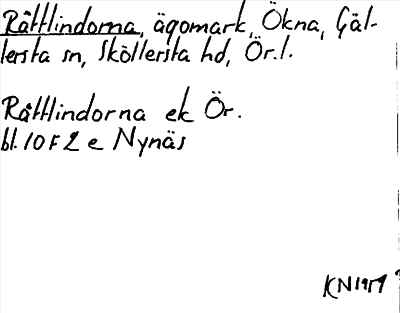 Råttlindorna, ägomark, Ökna, Gäl-
lersta sn, Sköllersta hd, Ör. l.
Råttlindorna ek Ör.
bl. 10 F 2 e Nynäs
KN